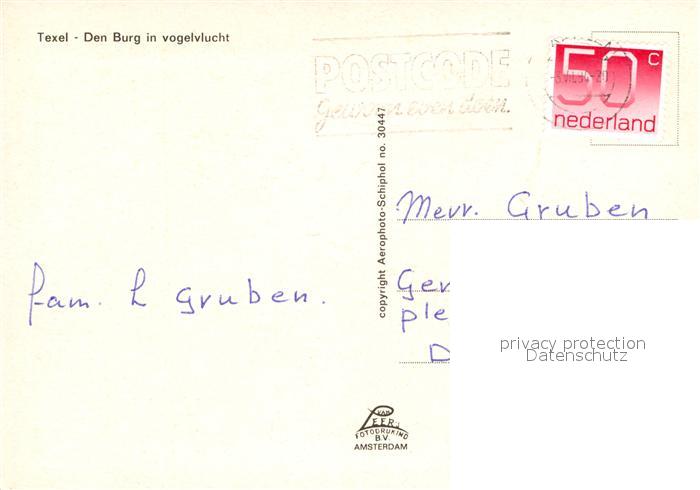 Texel - Den Burg in vogelvlucht
POSTCODE
gewoon even doen.
50 c
nederland
copyright Aerophoto-Schiphol no. 30447
Mevr. Gruben
fam. L Gruben.
Ger
ple
D
privacy protection
Datenschutz
VAN
LEER's
FOTODRUKIND
B.V.
AMSTERDAM